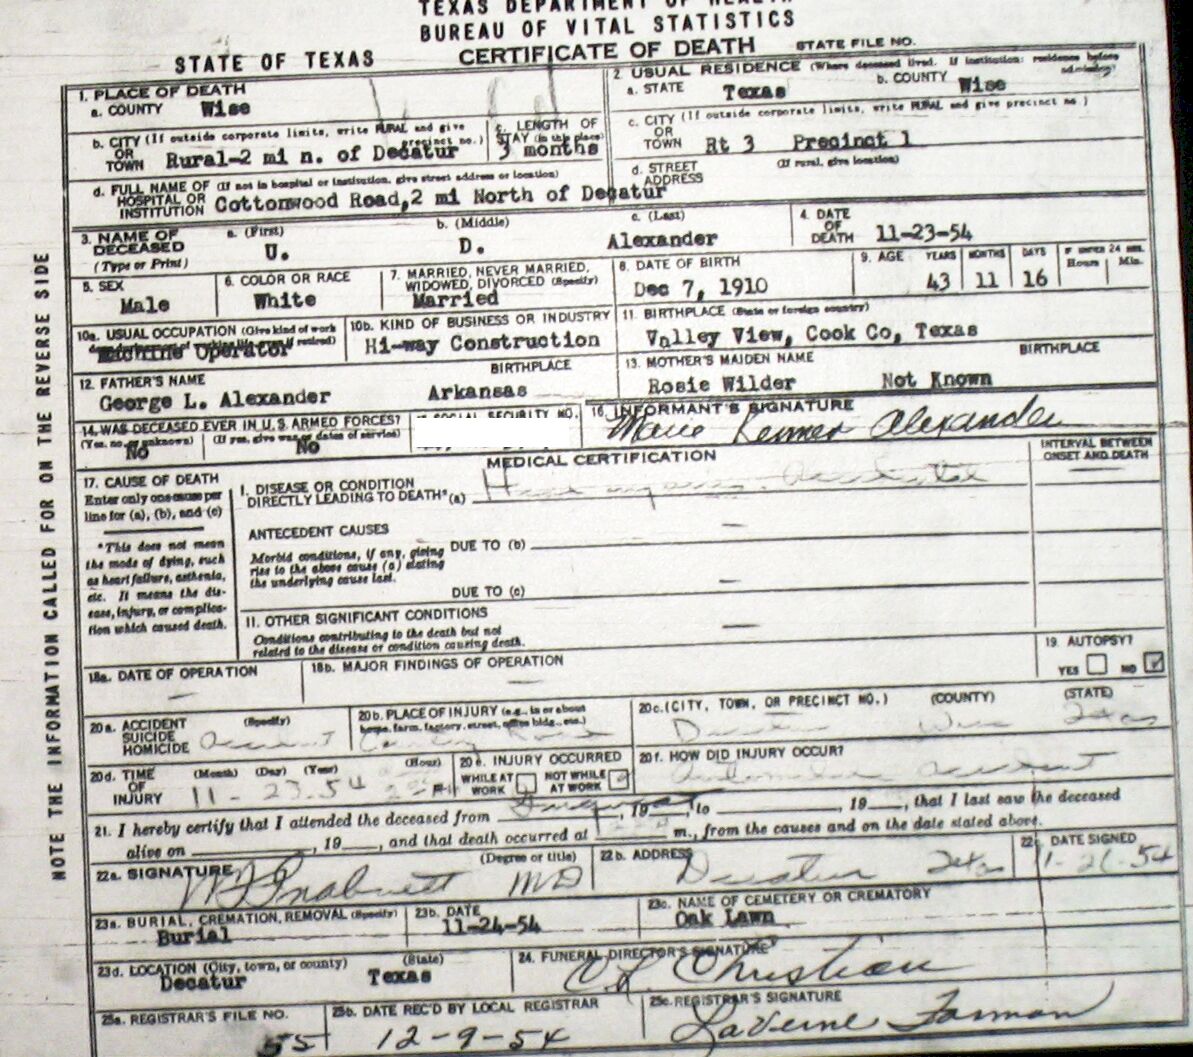 TEXAS DEPARTMENT OF HEALTH
BUREAU OF VITAL STATISTICS
STATE OF TEXAS CERTIFICATE OF DEATH STATE FILE NO.
1. PLACE OF DEATH
a. COUNTY Wise
2. USUAL RESIDENCE (Where deceased lived. If institution: residence before admission)
a. STATE Texas b. COUNTY Wise
b. CITY (If outside corporate limits, write RURAL and give precinct no.)
OR
TOWN Rural-2 mi n. of Decatur
c. LENGTH OF
STAY (in this place)
3 months
c. CITY (If outside corporate limits, write RURAL and give precinct no.)
OR
TOWN Rt 3 Precinct 1
d. FULL NAME OF (If not in hospital or institution, give street address or location)
HOSPITAL OR
INSTITUTION Cottonwood Road,2 mi North of Decatur
d. STREET (If rural, give location)
ADDRESS
3. NAME OF DECEASED (Type or Print)
a. (First) U.
b. (Middle) D.
c. (Last) Alexander
4. DATE
OF
DEATH 11-23-54
5. SEX
Male
6. COLOR OR RACE
White
7. MARRIED, NEVER MARRIED,
WIDOWED, DIVORCED (Specify)
Married
8. DATE OF BIRTH
Dec 7, 1910
9. AGE YEARS MONTHS DAYS IF UNDER 24 HRS.
Hours Min.
43 11 16
10a. USUAL OCCUPATION (Give kind of work
Machine Operator
10b. KIND OF BUSINESS OR INDUSTRY
Hi-way Construction
11. BIRTHPLACE (State or foreign country)
Valley View, Cook Co, Texas
12. FATHER'S NAME BIRTHPLACE
George L. Alexander Arkansas
13. MOTHER'S MAIDEN NAME BIRTHPLACE
Rosie Wilder Not Known
14. WAS DECEASED EVER IN U.S. ARMED FORCES?
(Yes, no, or unknown) (If yes, give war or dates of service)
No No
SOCIAL SECURITY NO.
16. INFORMANT'S SIGNATURE
Marie Alexander
MEDICAL CERTIFICATION
INTERVAL BETWEEN
ONSET AND DEATH
17. CAUSE OF DEATH
Enter only one cause per
line for (a), (b), and (c)
*This does not mean
the mode of dying, such
as heart failure, asthenia,
etc. It means the dis-
ease, injury, or complica-
tion which caused death.
I. DISEASE OR CONDITION
DIRECTLY LEADING TO DEATH* (a)
ANTECEDENT CAUSES
Morbid conditions, if any, giving
rise to the above cause (a) stating
the underlying cause last.
DUE TO (b) —
DUE TO (c) —
11. OTHER SIGNIFICANT CONDITIONS
Conditions contributing to the death but not
related to the disease or condition causing death.
—
18a. DATE OF OPERATION
—
18b. MAJOR FINDINGS OF OPERATION
—
19. AUTOPSY?
YES NO
20a. ACCIDENT (Specify)
SUICIDE
HOMICIDE Accident
20b. PLACE OF INJURY (e.g., in or about
home, farm, factory, street, office bldg., etc.)
Country Road
20c. (CITY, TOWN, OR PRECINCT NO.) (COUNTY) (STATE)
Decatur Wise Texas
20d. TIME (Month) (Day) (Year) (Hour)
OF
INJURY 11-23-54
20e. INJURY OCCURRED
WHILE AT
WORK
NOT WHILE
AT WORK
20f. HOW DID INJURY OCCUR?
Automobile Accident
21. I hereby certify that I attended the deceased from Inquest, 19___, to ___, 19___, that I last saw the deceased
alive on ___, 19___, and that death occurred at m., from the causes and on the date stated above.
22a. SIGNATURE (Degree or title)
MD
22b. ADDRESS
Decatur Texas
22c. DATE SIGNED
23a. BURIAL, CREMATION, REMOVAL (Specify)
Burial
23b. DATE
11-24-54
23c. NAME OF CEMETERY OR CREMATORY
Oak Lawn
23d. LOCATION (City, town, or county) (State)
Decatur Texas
24. FUNERAL DIRECTOR'S SIGNATURE
Christian
25a. REGISTRAR'S FILE NO.
55
25b. DATE REC'D BY LOCAL REGISTRAR
12-9-54
25c. REGISTRAR'S SIGNATURE
LaVerne
NOTE THE INFORMATION CALLED FOR ON THE REVERSE SIDE